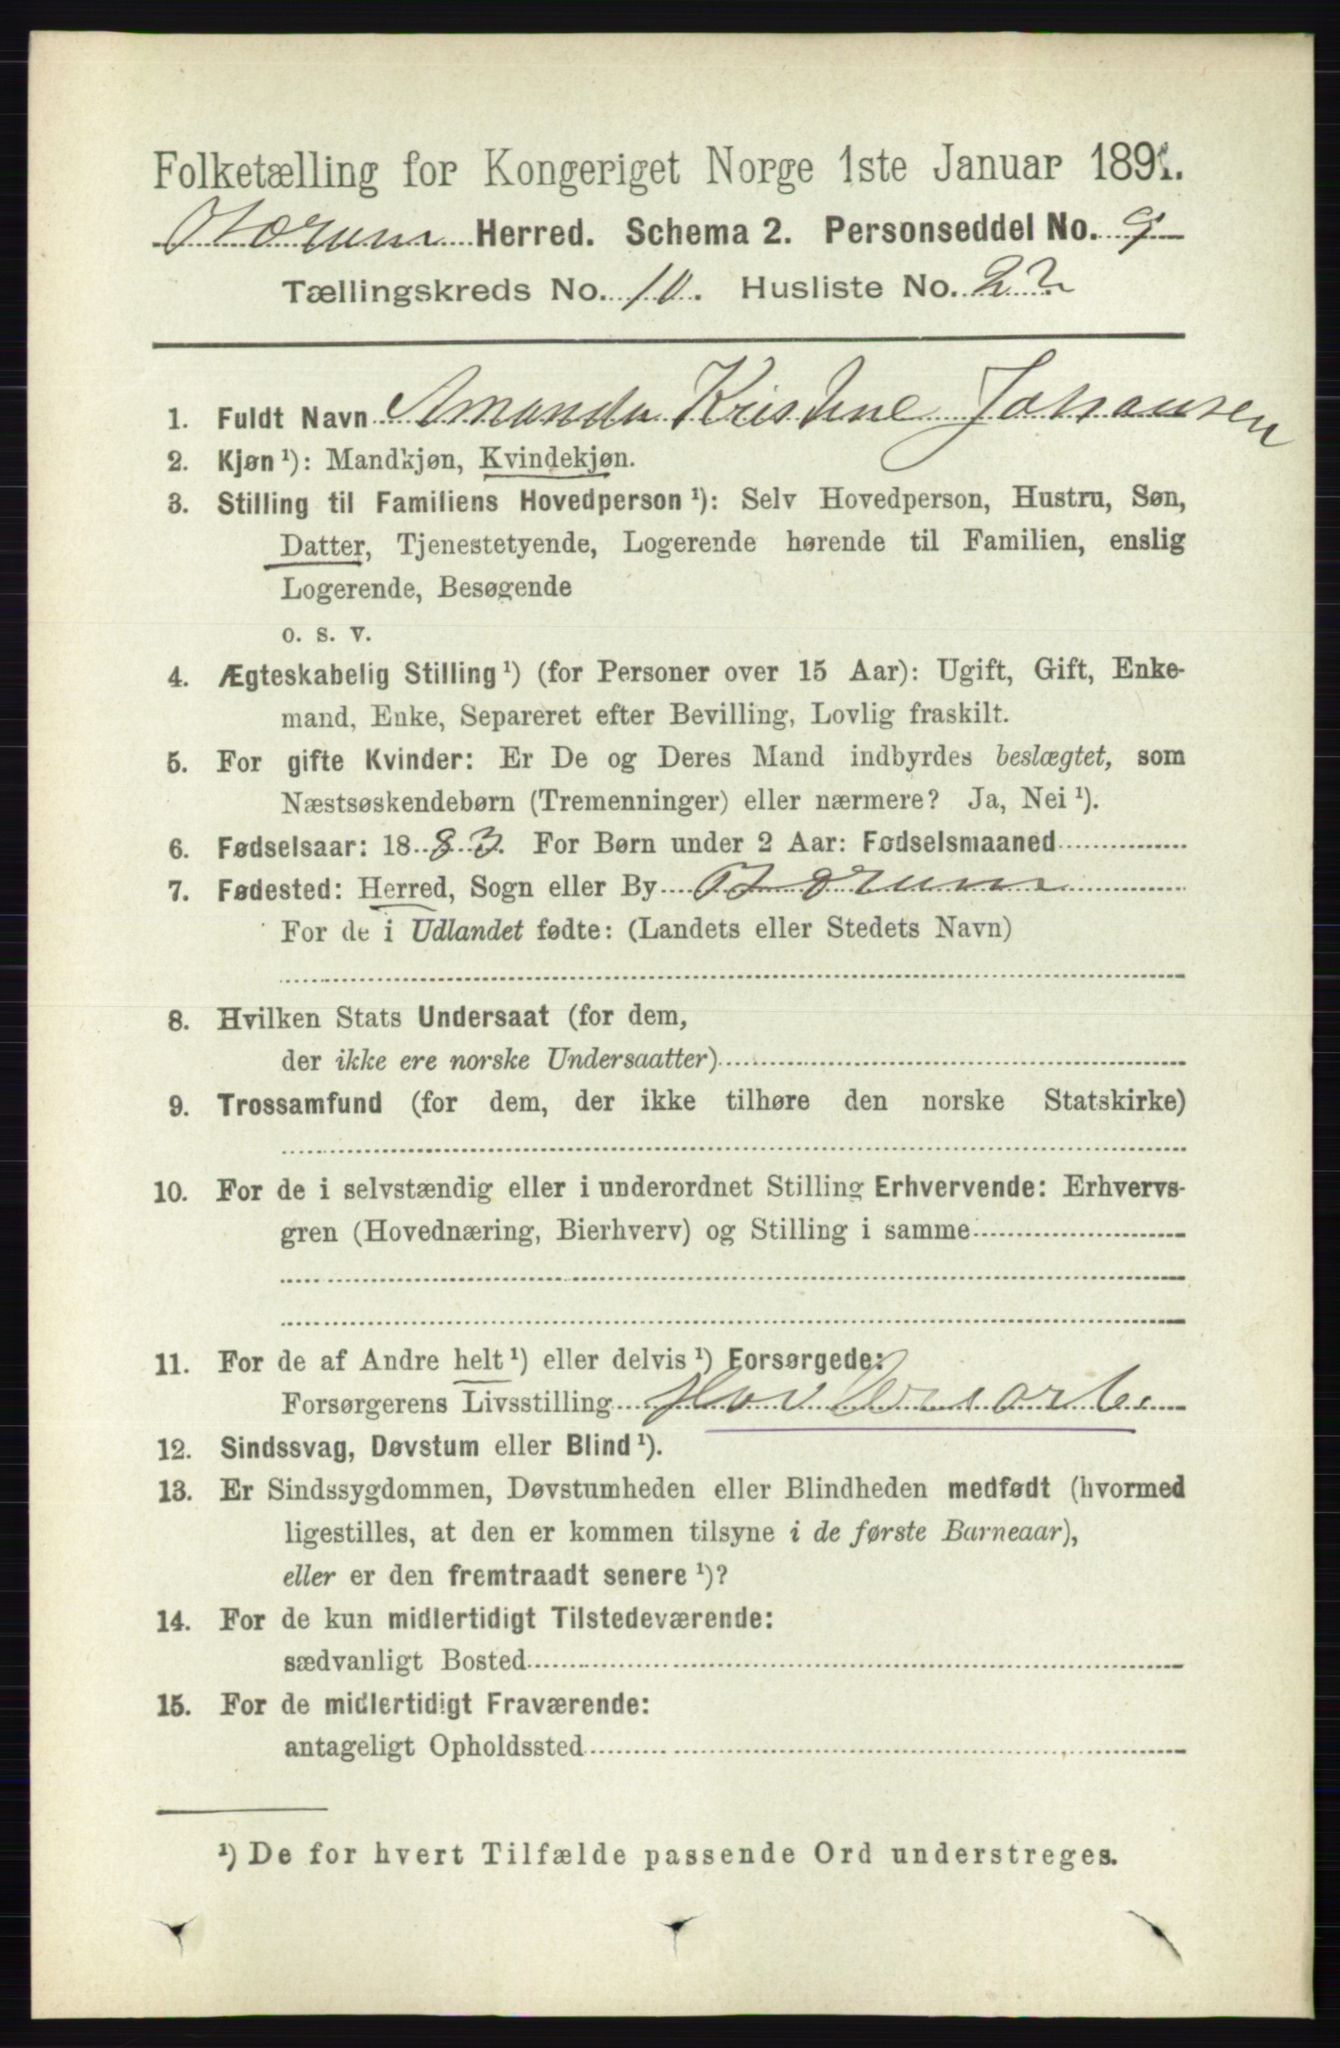 Folketælling for Kongeriget Norge 1ste Januar 1891.
Herred. Schema 2. Personseddel No. 9
Tællingskreds No. 10. Husliste No. 22
1. Fuldt Navn Amanda Kristine Johansen
2. Kjøn ¹): Mandkjøn, Kvindekjøn.
3. Stilling til Familiens Hovedperson ¹): Selv Hovedperson, Hustru, Søn,
Datter, Tjenestetyende, Logerende hørende til Familien, enslig
Logerende, Besøgende
o. s. v.
4. Ægteskabelig Stilling ¹) (for Personer over 15 Aar): Ugift, Gift, Enke-
mand, Enke, Separeret efter Bevilling, Lovlig fraskilt.
5. For gifte Kvinder: Er De og Deres Mand indbyrdes beslægtet, som
Næstsøskendebørn (Tremenninger) eller nærmere? Ja, Nei ¹).
6. Fødselsaar: 1883. For Børn under 2 Aar: Fødselsmaaned
7. Fødested: Herred, Sogn eller By
For de i Udlandet fødte: (Landets eller Stedets Navn)
8. Hvilken Stats Undersaat (for dem,
der ikke ere norske Undersaatter)
9. Trossamfund (for dem, der ikke tilhøre den norske Statskirke)
10. For de i selvstændig eller i underordnet Stilling Erhvervende: Erhvervs-
gren (Hovednæring, Bierhverv) og Stilling i samme
11. For de af Andre helt ¹) eller delvis ¹) Forsørgede:
Forsørgerens Livsstilling
12. Sindssvag, Døvstum eller Blind ¹).
13. Er Sindssygdommen, Døvstumheden eller Blindheden medfødt (hvormed
ligestilles, at den er kommen tilsyne i de første Barneaar),
eller er den fremtraadt senere ¹)?
14. For de kun midlertidigt Tilstedeværende:
sædvanligt Bosted
15. For de midlertidigt Fraværende:
antageligt Opholdssted
¹) De for hvert Tilfælde passende Ord understreges.